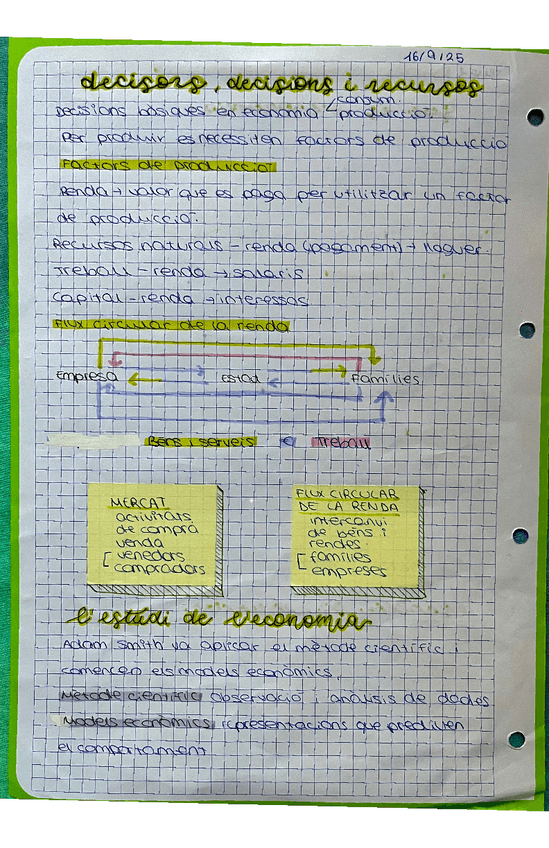 16/9/25
decisors, decisions i recursos
Decisions bàsiques en economia < consum.
producció.
Per produir es necessiten factors de producció
Factors de producció
Renda → valor que es paga per utilitzar un factor
de producció.
Recursos naturals – renda (pagament) → lloguer.
Treball – renda → salaris
Capital – renda → interessos
Flux circular de la renda
Empresa Estat Famílies
Béns i serveis € Treball
MERCAT
activitats
de compra
venda
[ venedors
compradors
FLUX CIRCULAR
DE LA RENDA
intercanvi
de béns i
rendes.
[ famílies
empreses
l'estudi de l'economia
Adam Smith va aplicar el mètode científic i
comencen els models econòmics.
Mètode científic observació i anàlisis de dades
Models econòmics representacions que prediuen
el comportament